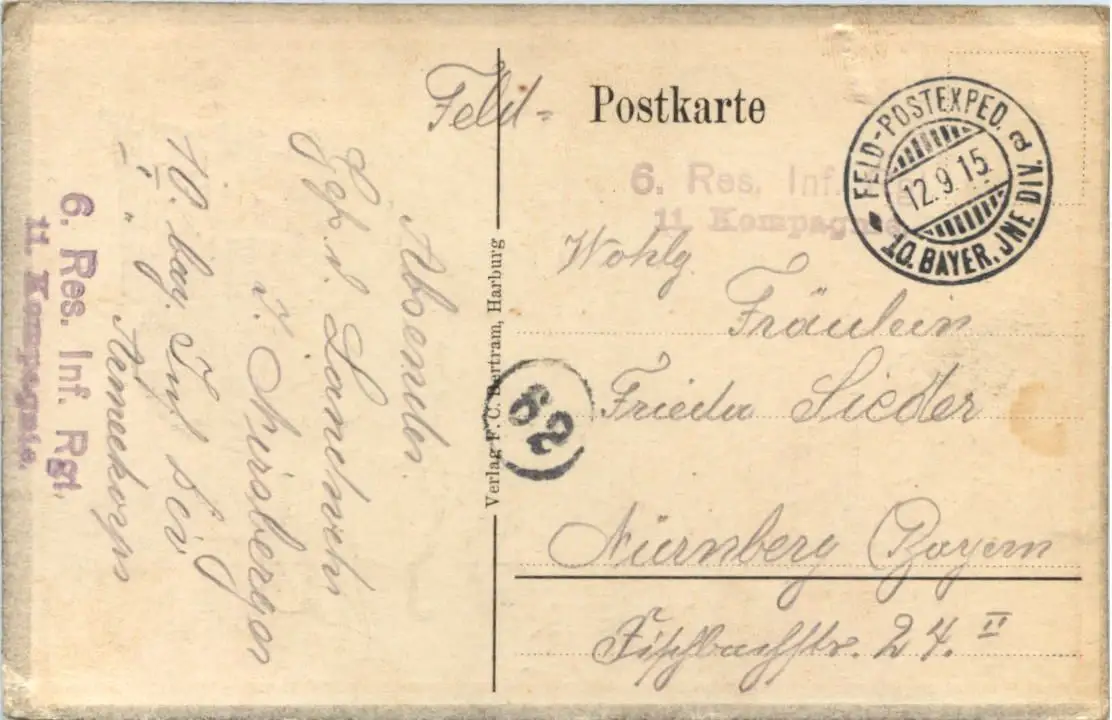 Feld-
Postkarte
FELD-POSTEXPED. a
12.9.15
10. BAYER. JNF. DIV.
6. Res. Inf.
11. Kompagnie
Wohlg
Fräulein
Frieda Siedler
Nürnberg (Bayern
Fischbachstr. 24. II
Verlag F. C. Bertram, Harburg
Absender
Gefr. d. Landwehr
10. bay. Inf
" Armeekorps
6. Res. Inf. Rgt.
11. Kompagnie.